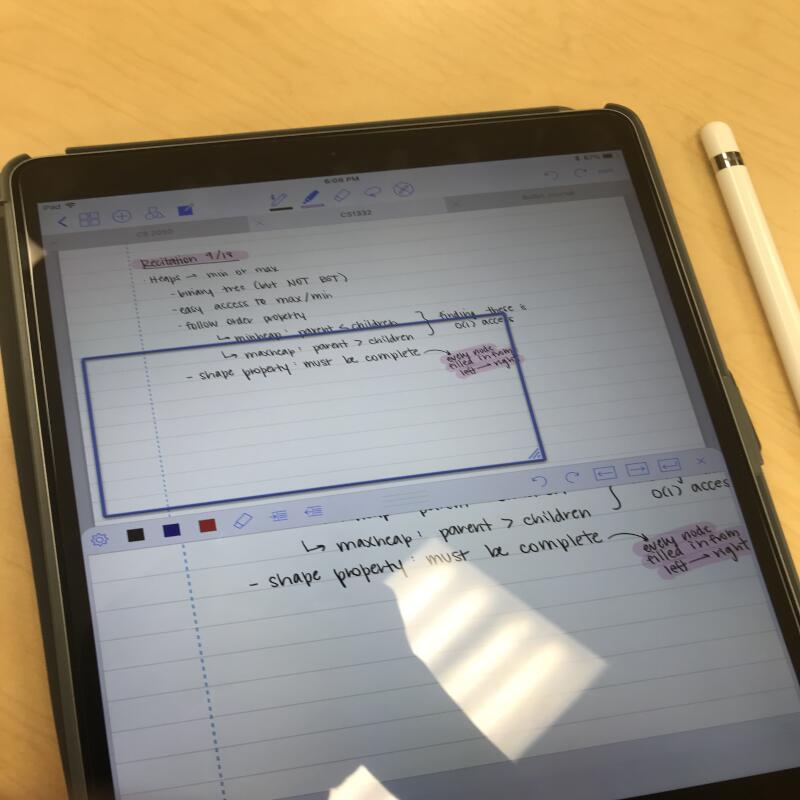 iPad
6:08 PM
67%
CS 2050
CS1332
Bullet Journal
Recitation 9/18
· Heaps → min or max
- binary tree (but NOT BST)
- easy access to max/min
- follow order property
↳ minheap: parent < children } finding these is
↳ maxheap: parent > children O(1) access
- shape property: must be complete → every node
filled in from
left → right
children } O(1) acces
↳ maxheap: parent > children
- shape property: must be complete → every node
filled in from
left → right